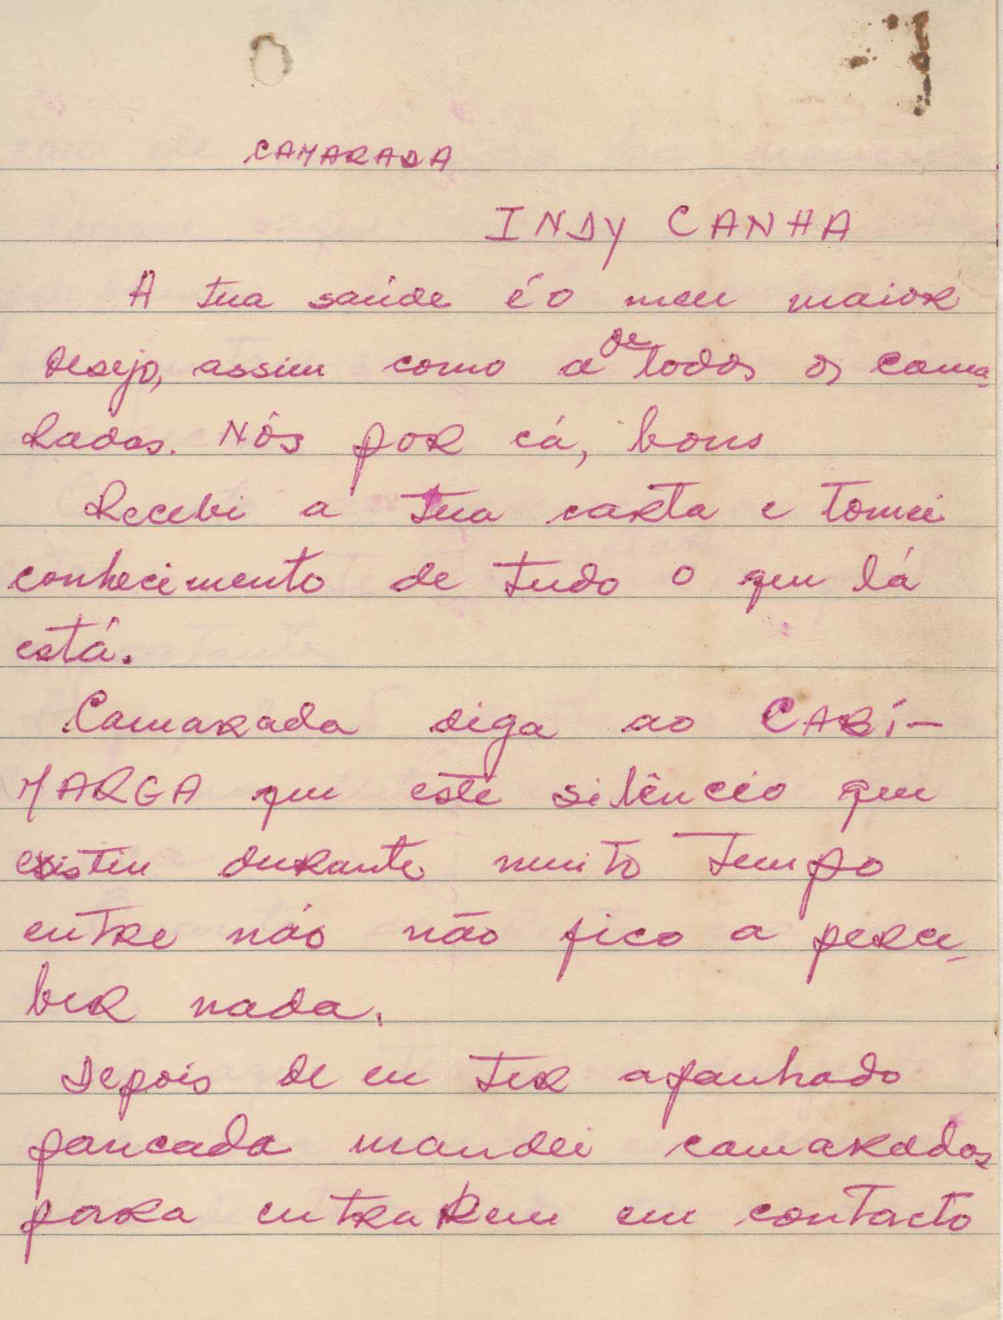 CAMARADA
INDY CANHA
A tua saúde é o meu maior
desejo, assim como a de todos os cama-
radas. Nós por cá, bons
Recebi a tua carta e tomei
conhecimento de tudo o que lá
está.
Camarada diga ao CABÍ-
MARGA que este silêncio que
existiu durante muito tempo
entre nós não fico a perce-
ber nada.
Depois de eu ter apanhado
pancada mandei camaradas
para entrarem em contacto